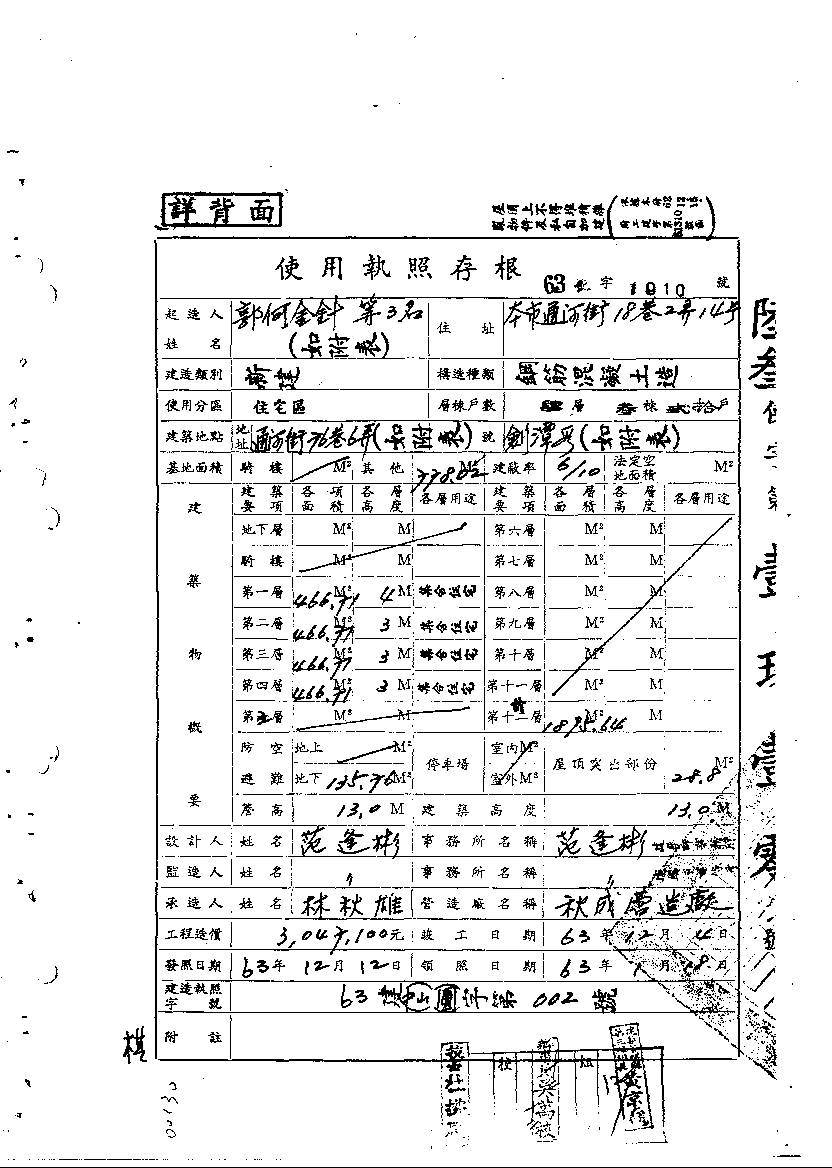 詳背面
屋頂上不得堆積雜
使用執照存根
63 字 1010 號
起造人姓名 郭何金針 等3名 (如附表) 住址 本市通河街18巷2弄14号
建造類別 新建 構造種類 鋼筋混凝土造
使用分區 住宅區 層棟戶數 層 棟 貳拾戶
建築地點 地址 通河街76巷6弄(如附表)號 劍潭段(如附表)
基地面積 騎樓 M² 其他 建蔽率 6/10 法定空地面積 M²
建築物概要
建築要項 各項面積 各層高度 各層用途 建築要項 各層面積 各層高度 各層用途
地下層 M² M 第六層 M² M
騎樓 M² M 第七層 M² M
第一層 466.71 M² 4 M 集合住宅 第八層 M² M
第二層 466.71 M² 3 M 集合住宅 第九層 M² M
第三層 466.71 M² 3 M 集合住宅 第十層 M² M
第四層 466.71 M² 3 M 集合住宅 第十一層 M² M
第五層 M² M 第十二層 M² M
防空避難 地上 M² 停車場 室內M² 屋頂突出部份 M²
地下 135.76 M² 室外M² 28.8
簷高 13.0 M 建築高度 13.0 M
設計人 姓名 范逢彬 事務所名稱 范逢彬
監造人 姓名 〃 事務所名稱 〃
承造人 姓名 林秋雄 營造廠名稱 秋成營造廠
工程造價 元 竣工日期 63年12月4日
發照日期 63年12月12日 領照日期 63年 月18日
建造執照字號 63建(中山)圓字第002號
附註
棋
00130
陸叁使字第壹零壹零號